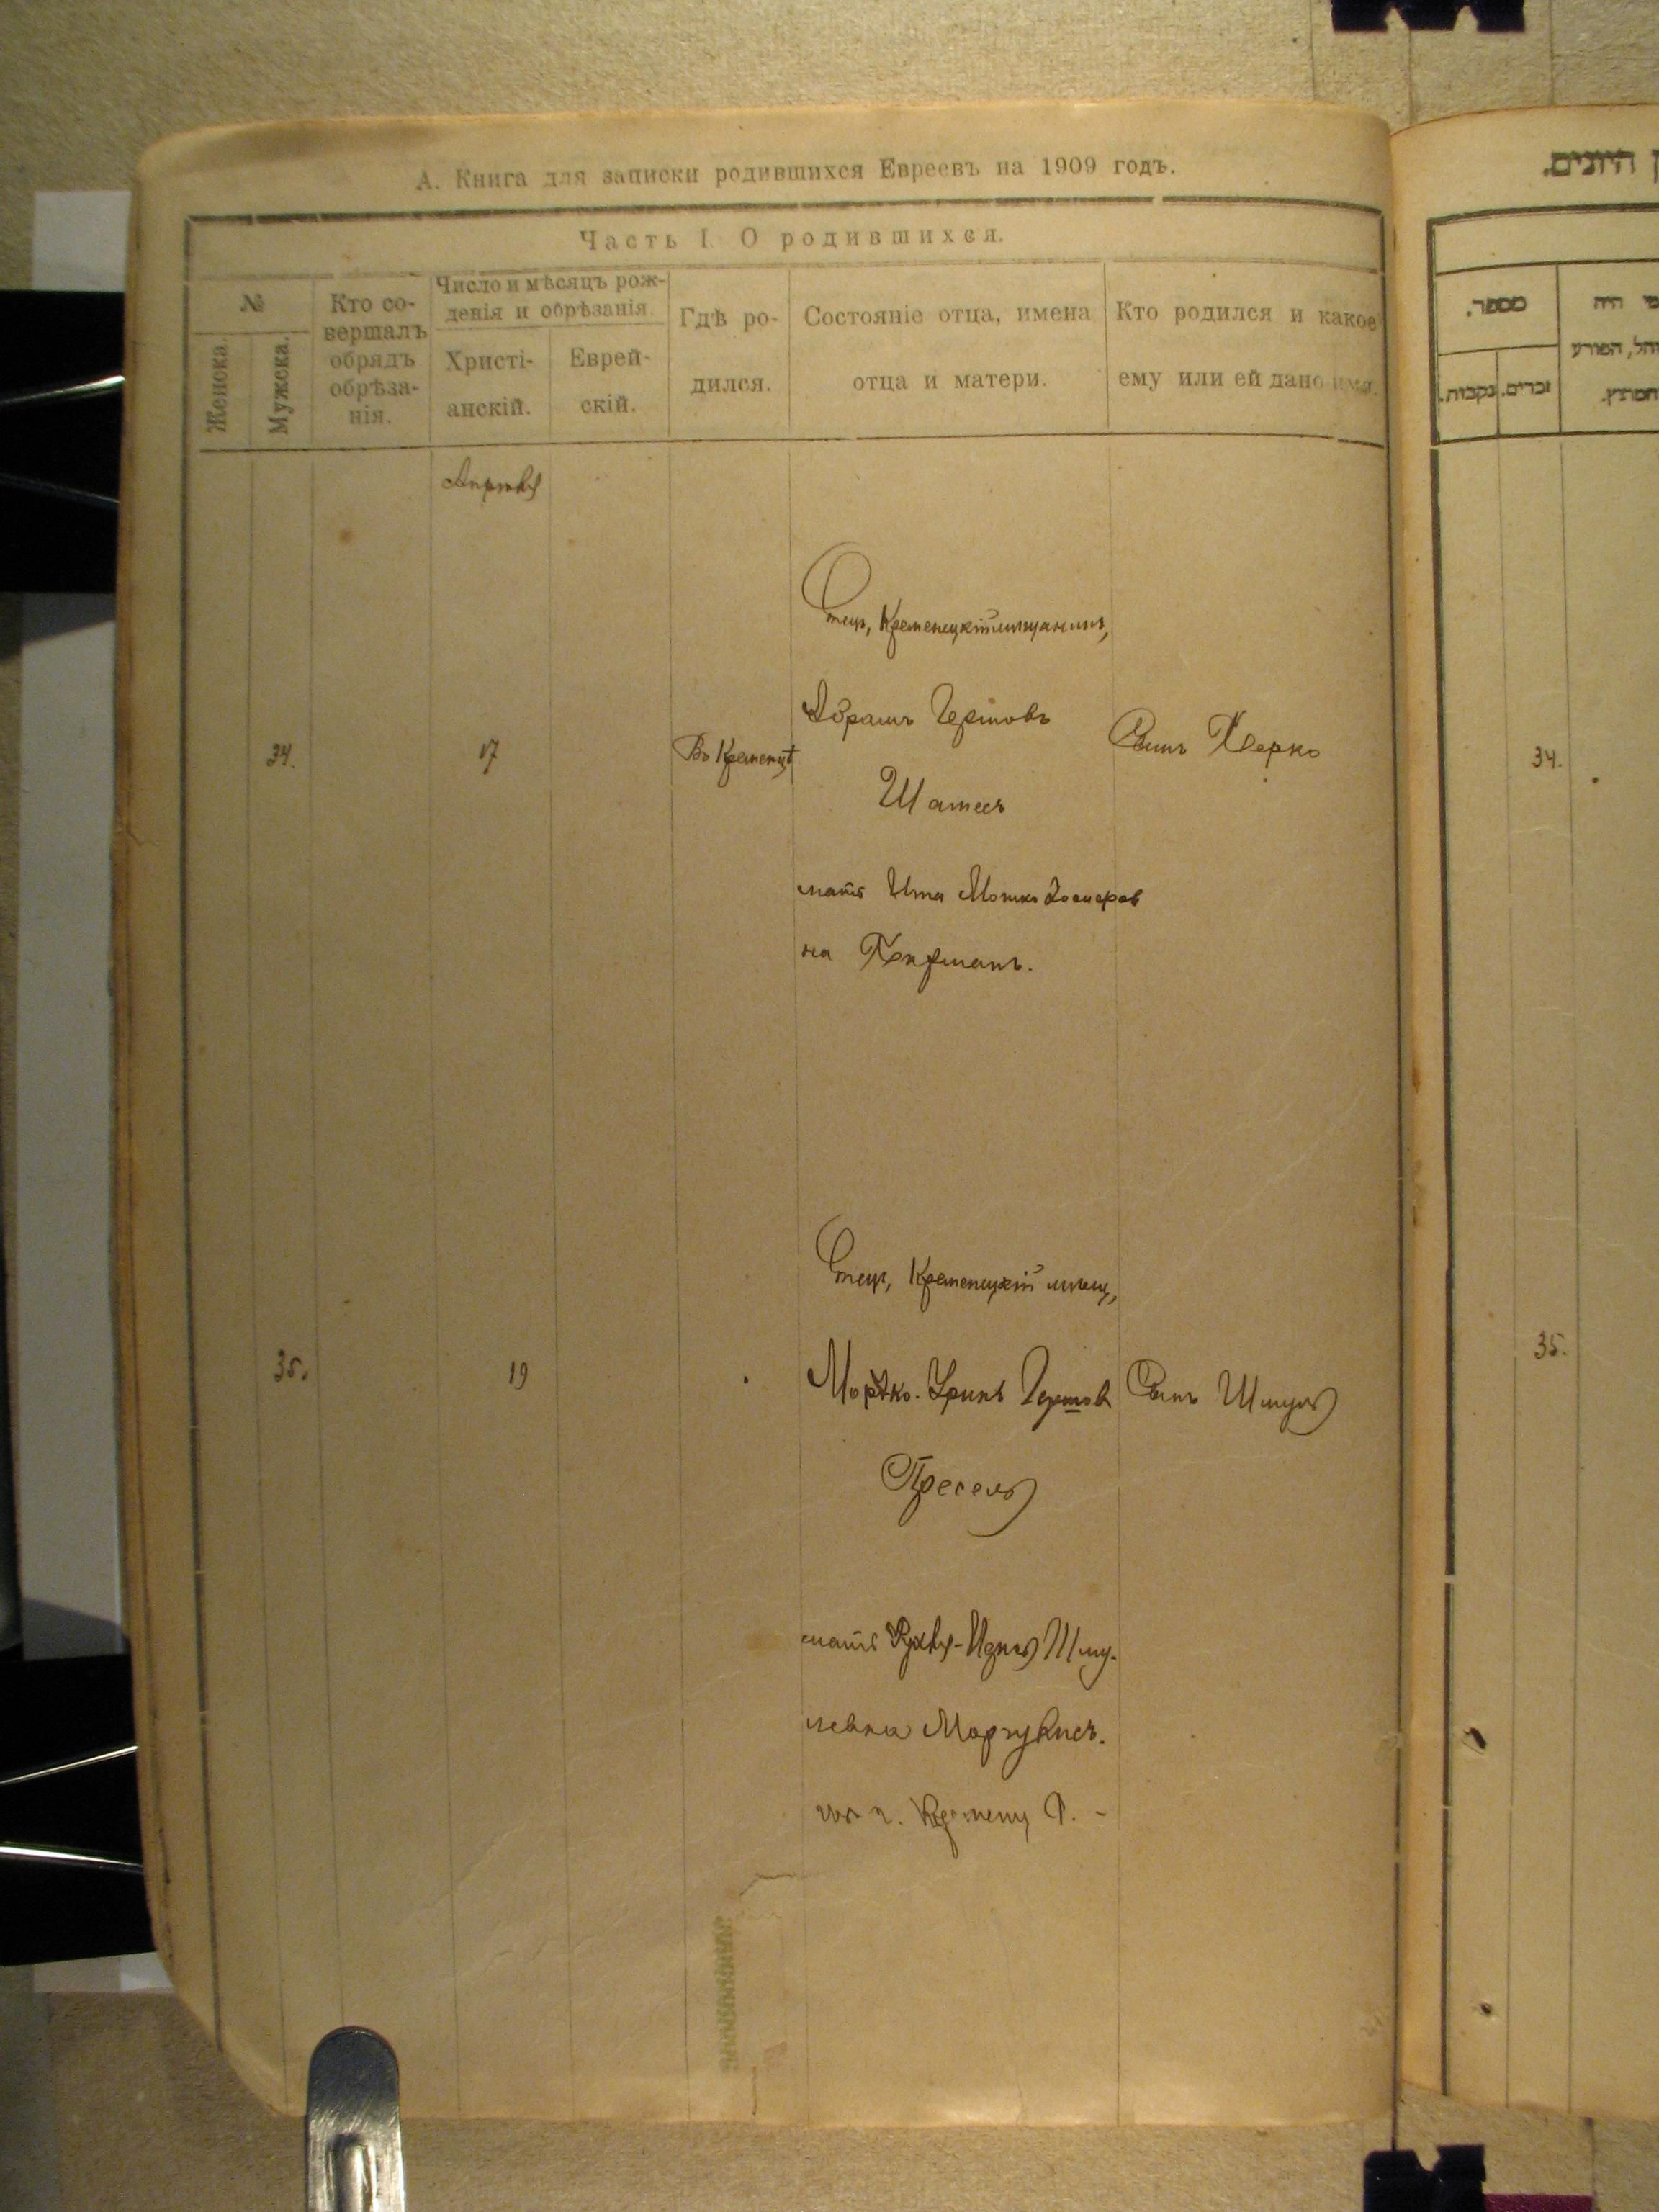 А. Книга для записки родившихся Евреевъ на 1909 годъ.
Часть I. О родившихся.
№
Женска.
Мужска.
Кто со-
вершалъ
обрядъ
обрѣза-
нія.
Число и мѣсяцъ рож-
денія и обрѣзанія.
Христі-
анскій.
Еврей-
скій.
Гдѣ ро-
дился.
Состояніе отца, имена
отца и матери.
Кто родился и какое
ему или ей дано имя.
Апрѣля
34.
17
Въ Кременцѣ
Отецъ, Кременецкій мѣщанинъ,
Абрамъ Гершовъ
Шатесъ
мать Ита Мошко
на
Сынъ Берко
35.
19
Отецъ, Кременецкій мѣщ,
Мордко. Гершов
Пресель
мать Рухля- Шму.
левна Маргулисъ.
Сынъ Шмуль
מספר.
זכרים.
נקבות.
34.
35.